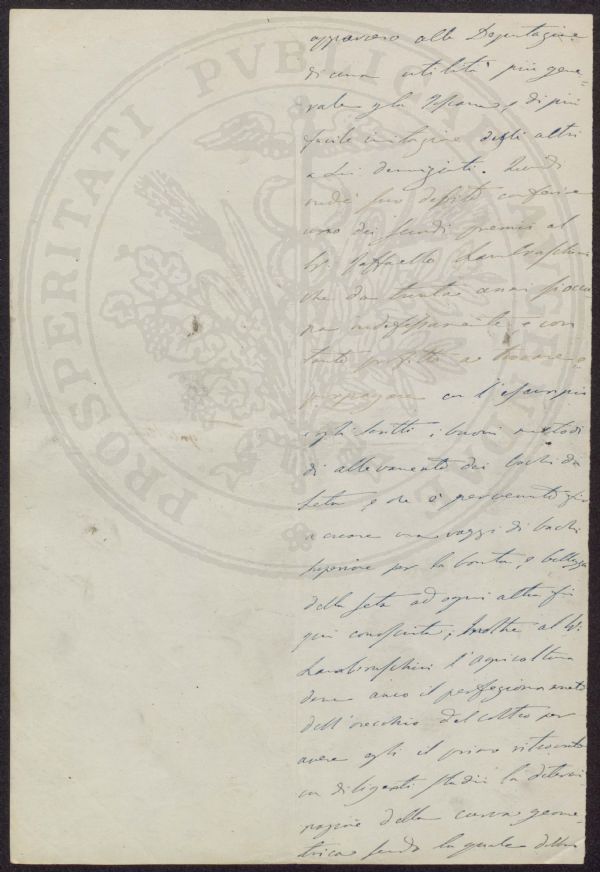 PROSPERITATI PVBLICAE AVGENDAE
apparvero alla Deputazione
di una utilità più gene-
rale gli Toscana, e di più
facile imitazione degli altri
a Lui
suo debito conferire
uno dei grandi premii al
Sr. Raffaello Lambruschini
che da trenta anni si occu
pa indefessamente e con
tanto profitto a trovare e
propagare con l'esempio
e gli scritti i buoni metodi
di allevamento dei bachi da
seta, e che è pervenuto già
a creare una razza di bachi
superiore per la bontà e bellezza
della seta ad ogni altra fi
qui conosciuta; Inoltre al Sr.
Lambruschini l'agricoltura
deve anco il perfezionamento
dell'orecchio del coltro per
avere egli il primo ritrovato
con diligenti studii la determi
nazione della curva geome-
trica secondo la quale della